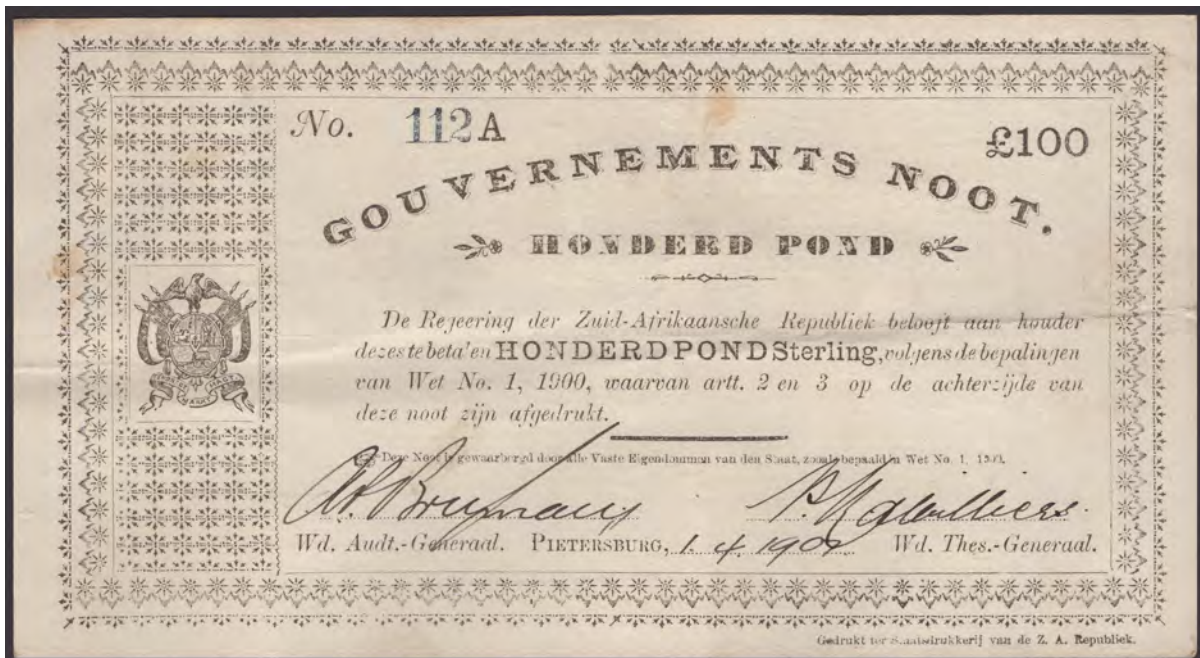 No. 112 A
£100
GOUVERNEMENTS NOOT.
HONDERD POND
De Regeering der Zuid-Afrikaansche Republiek belooft aan houder
dezes te beta'en HONDERD POND Sterling, volgens de bepalingen
van Wet No. 1, 1900, waarvan artt. 2 en 3 op de achterzijde van
deze noot zijn afgedrukt.
Deze Noot is gewaarborgd door alle Vaste Eigendommen van den Staat, zooals bepaald in Wet No. 1, 1900.
Wd. Audt.-Generaal. PIETERSBURG, 1. 4. 1901 Wd. Thes.-Generaal.
Gedrukt ter Staatsdrukkerij van de Z. A. Republiek.